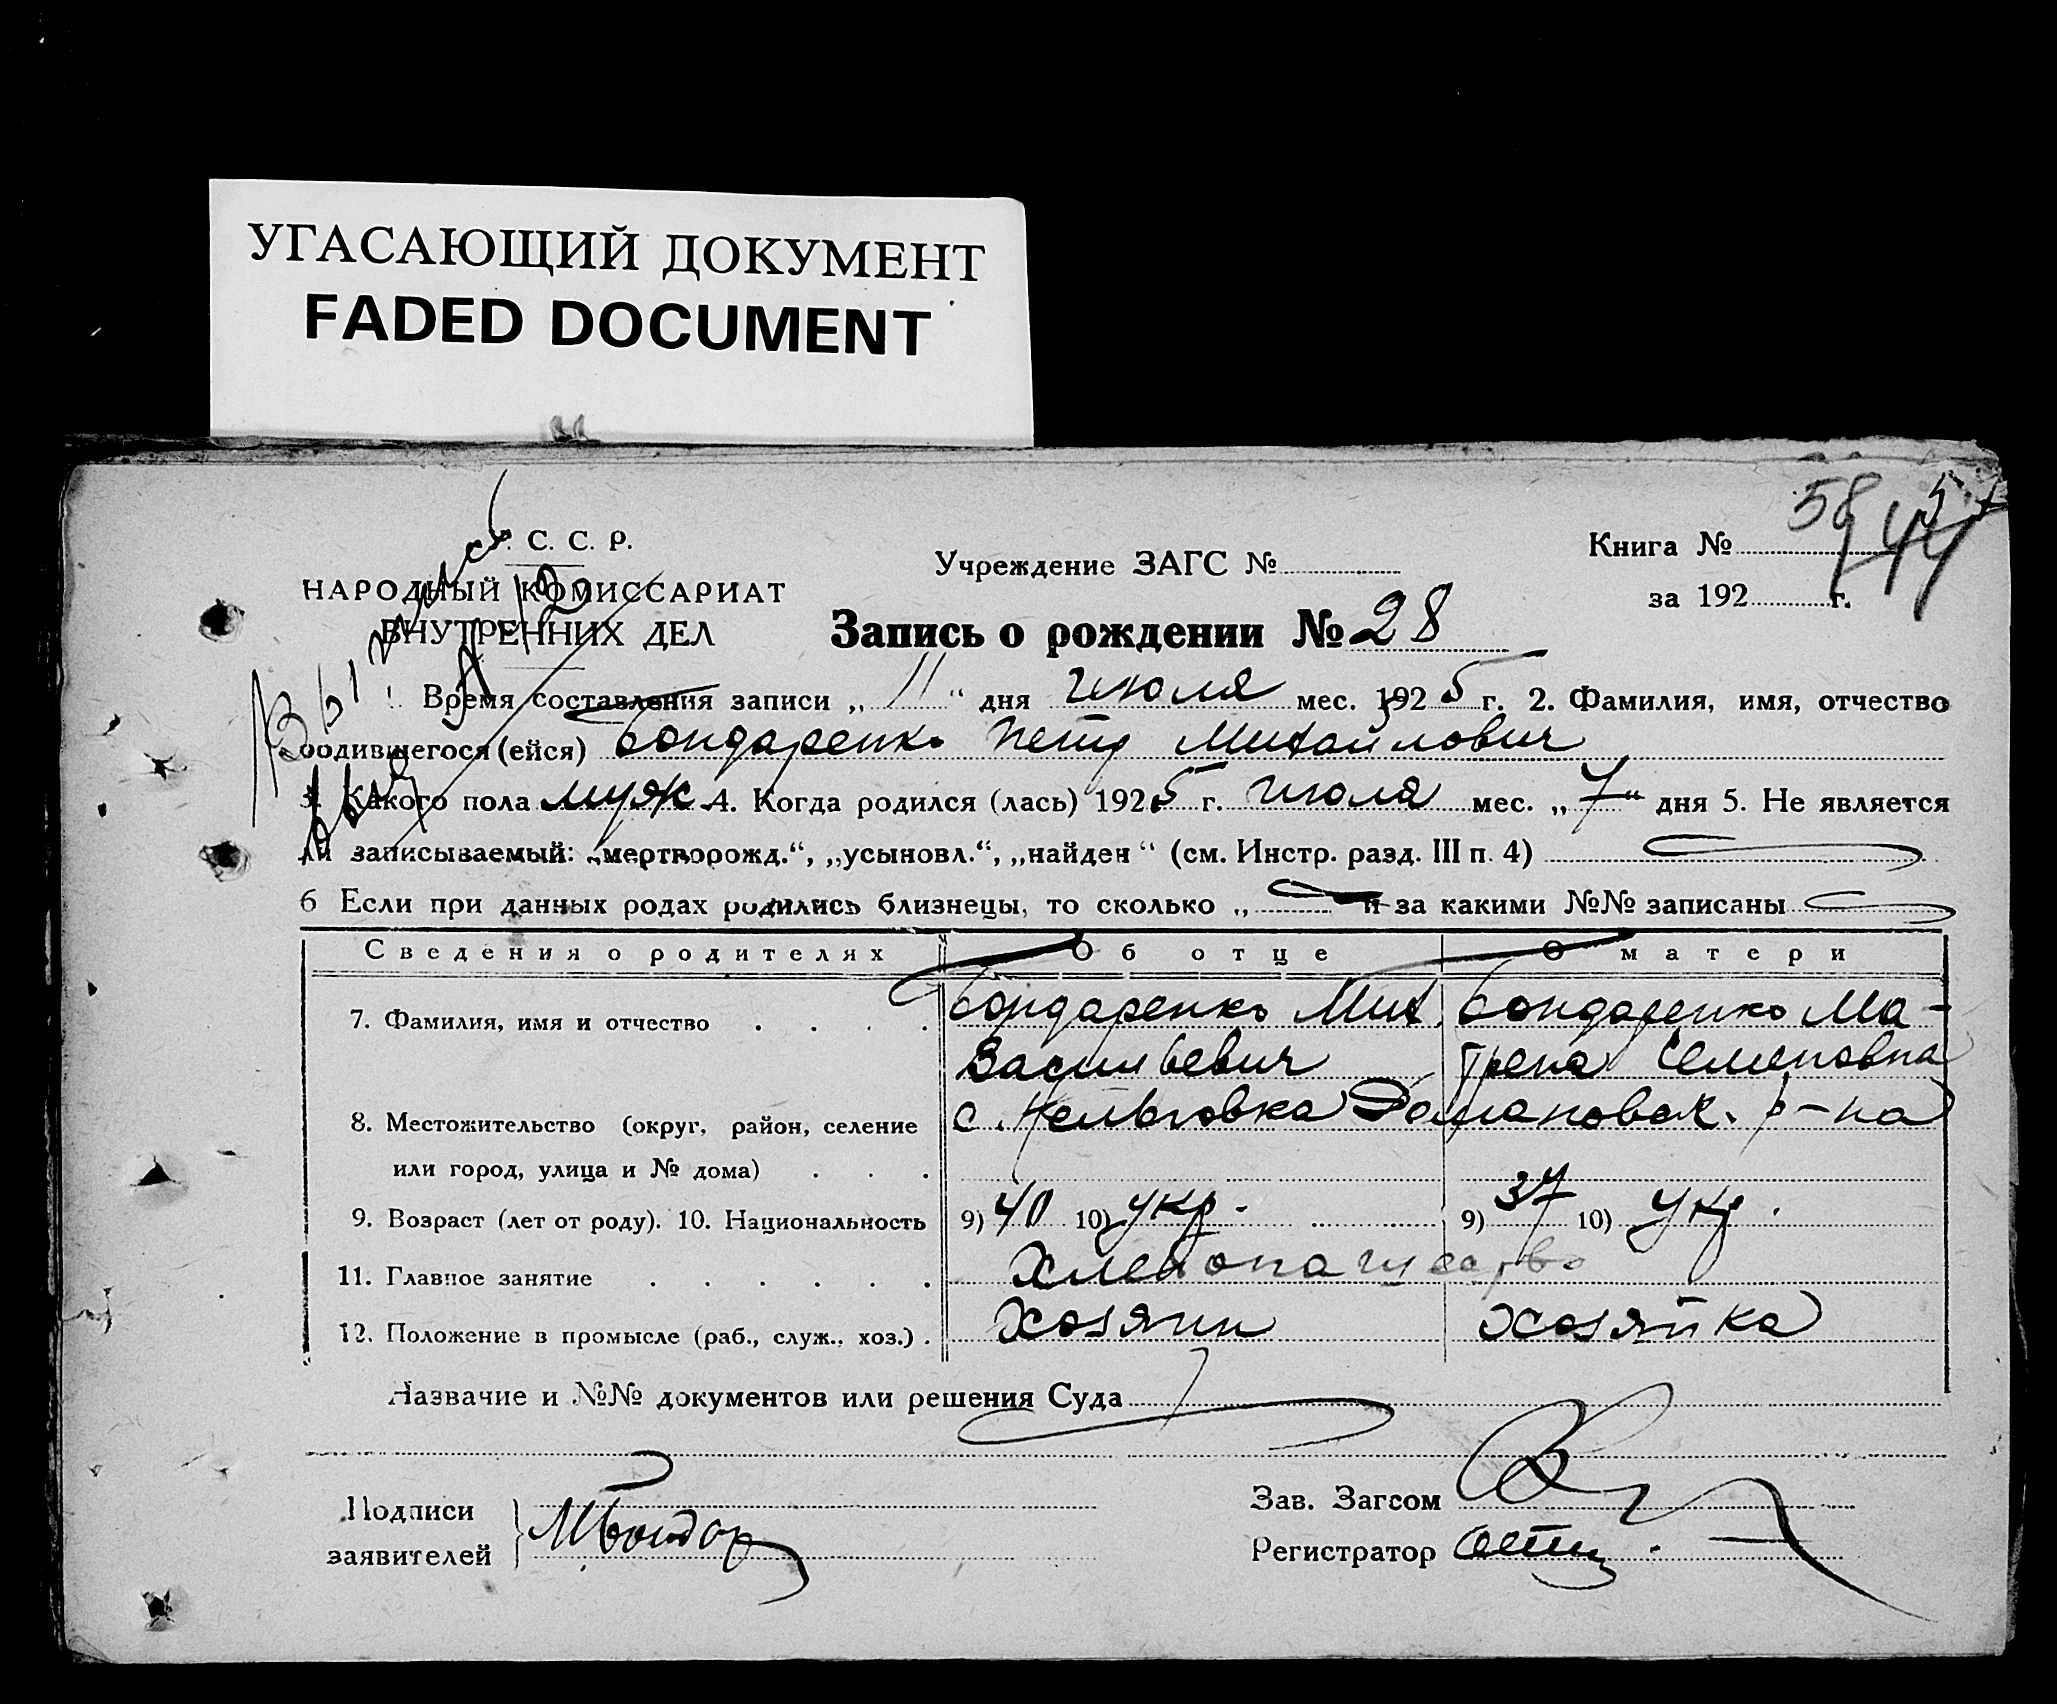 УГАСАЮЩИЙ ДОКУМЕНТ
FADED DOCUMENT
С. С. Р.
НАРОДНЫЙ КОМИССАРИАТ
ВНУТРЕННИХ ДЕЛ
Учреждение ЗАГС №
Книга №
за 192 г.
Запись о рождении № 28
Время составления записи „ 11 “ дня июля мес. 1925 г. 2. Фамилия, имя, отчество
родившегося (ейся) Бондаренко Петр Михайлович
3. Какого пола муж. 4. Когда родился (лась) 1925 г. июля мес. „ 7 “ дня 5. Не является
ли записываемый: „мертворожд.“, „усыновл.“, „найден“ (см. Инстр. разд. III п. 4)
6 Если при данных родах родились близнецы, то сколько „ и за какими №№ записаны
Сведения о родителях Об отце О матери
7. Фамилия, имя и отчество Бондаренко Мих. Бондаренко Ма-
Васильевич трена Семеновна
8. Местожительство (округ, район, селение с. р-на
или город, улица и № дома)
9. Возраст (лет от роду). 10. Национальность 9) 40 10) укр. 9) 37 10) укр.
11. Главное занятие Хлебопашество
12. Положение в промысле (раб., служ., хоз.) хозяин хозяйка
Название и №№ документов или решения Суда
Подписи
заявителей М Бондар
Зав. Загсом
Регистратор